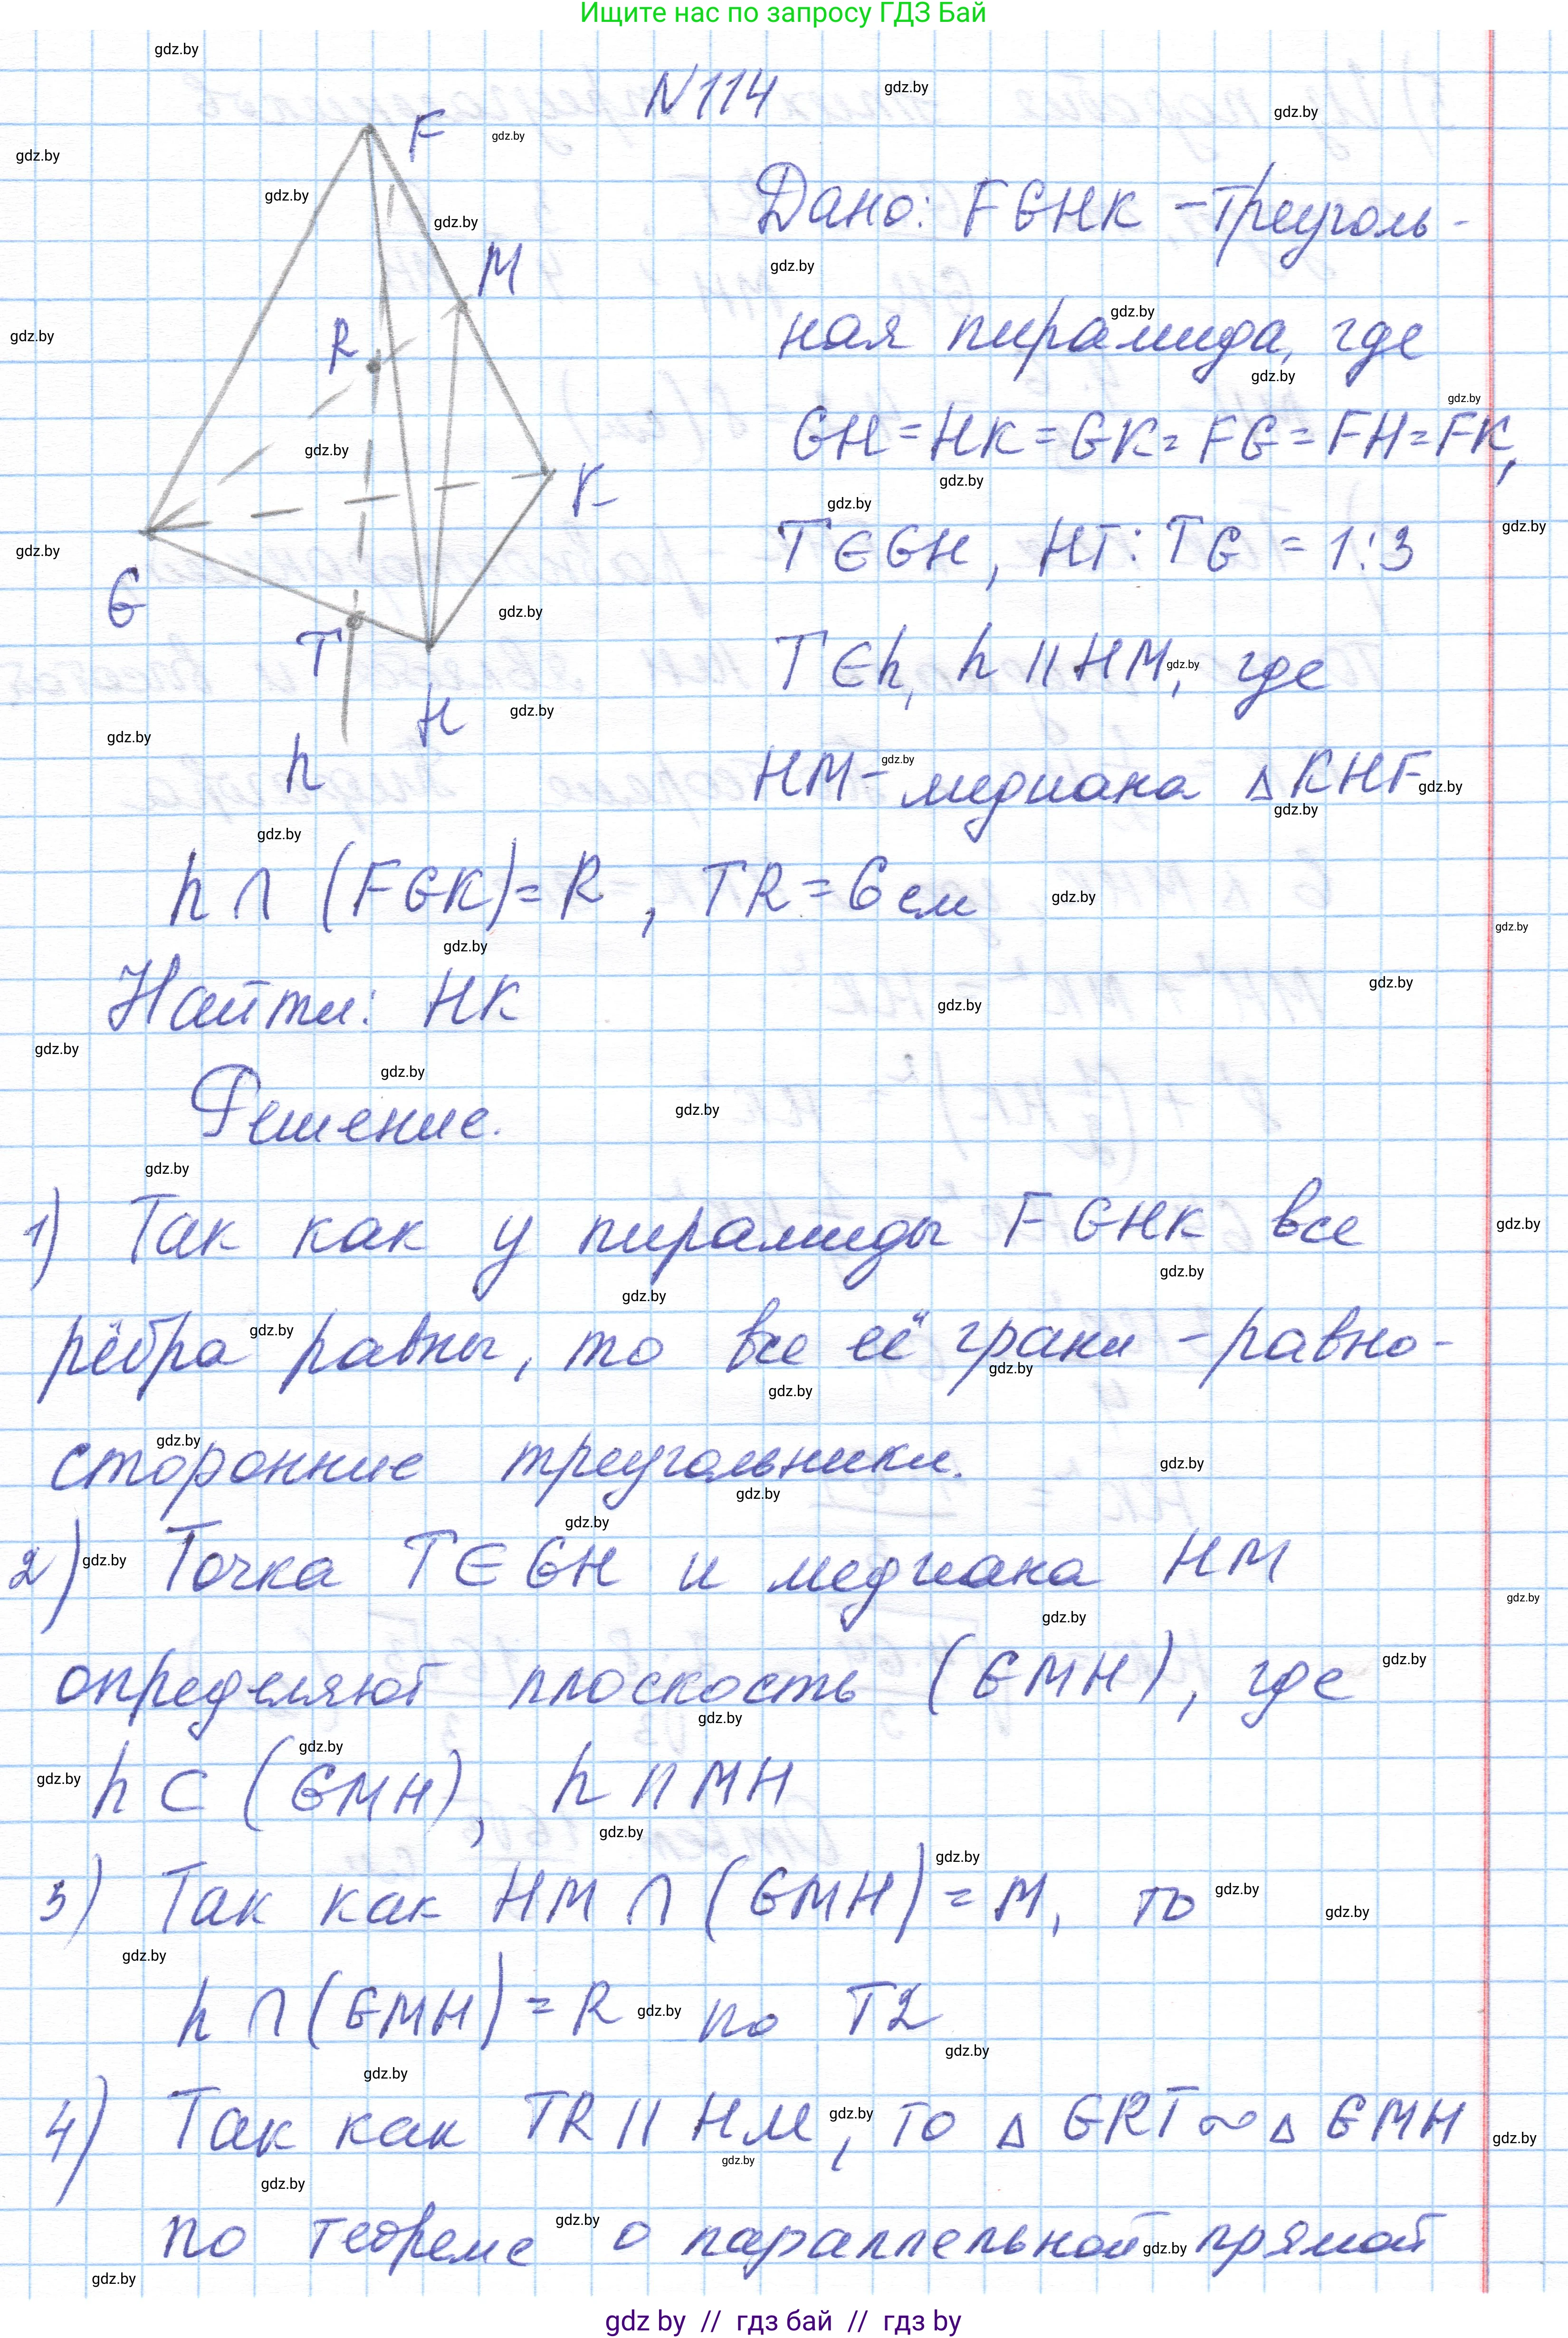 Ищите нас по запросу ГДЗ Бай
N114
F
M
R
K
G
T
H
h
Дано: FGHK – треуголь-
ная пирамида, где
GH = HK = GK = FG = FH = FK,
T ∈ GH, HT : TG = 1 : 3
T ∈ h, h || HM, где
HM – медиана Δ KHF
h ∩ (FGK) = R, TR = 6 см
Найти: HK
Решение.
1) Так как у пирамиды FGHK все
рёбра равны, то все её грани – равно-
сторонние треугольники.
2) Точка T ∈ GH и медиана HM
определяют плоскость (GMH), где
h ⊂ (GMH), h ∩ MH
3) Так как HM ∩ (GMH) = M, то
h ∩ (GMH) = R по Т2
4) Так как TR || HM, то Δ GRT ∾ Δ GMH
по теореме о параллельной прямой
gdz by // гдз бай // гдз by